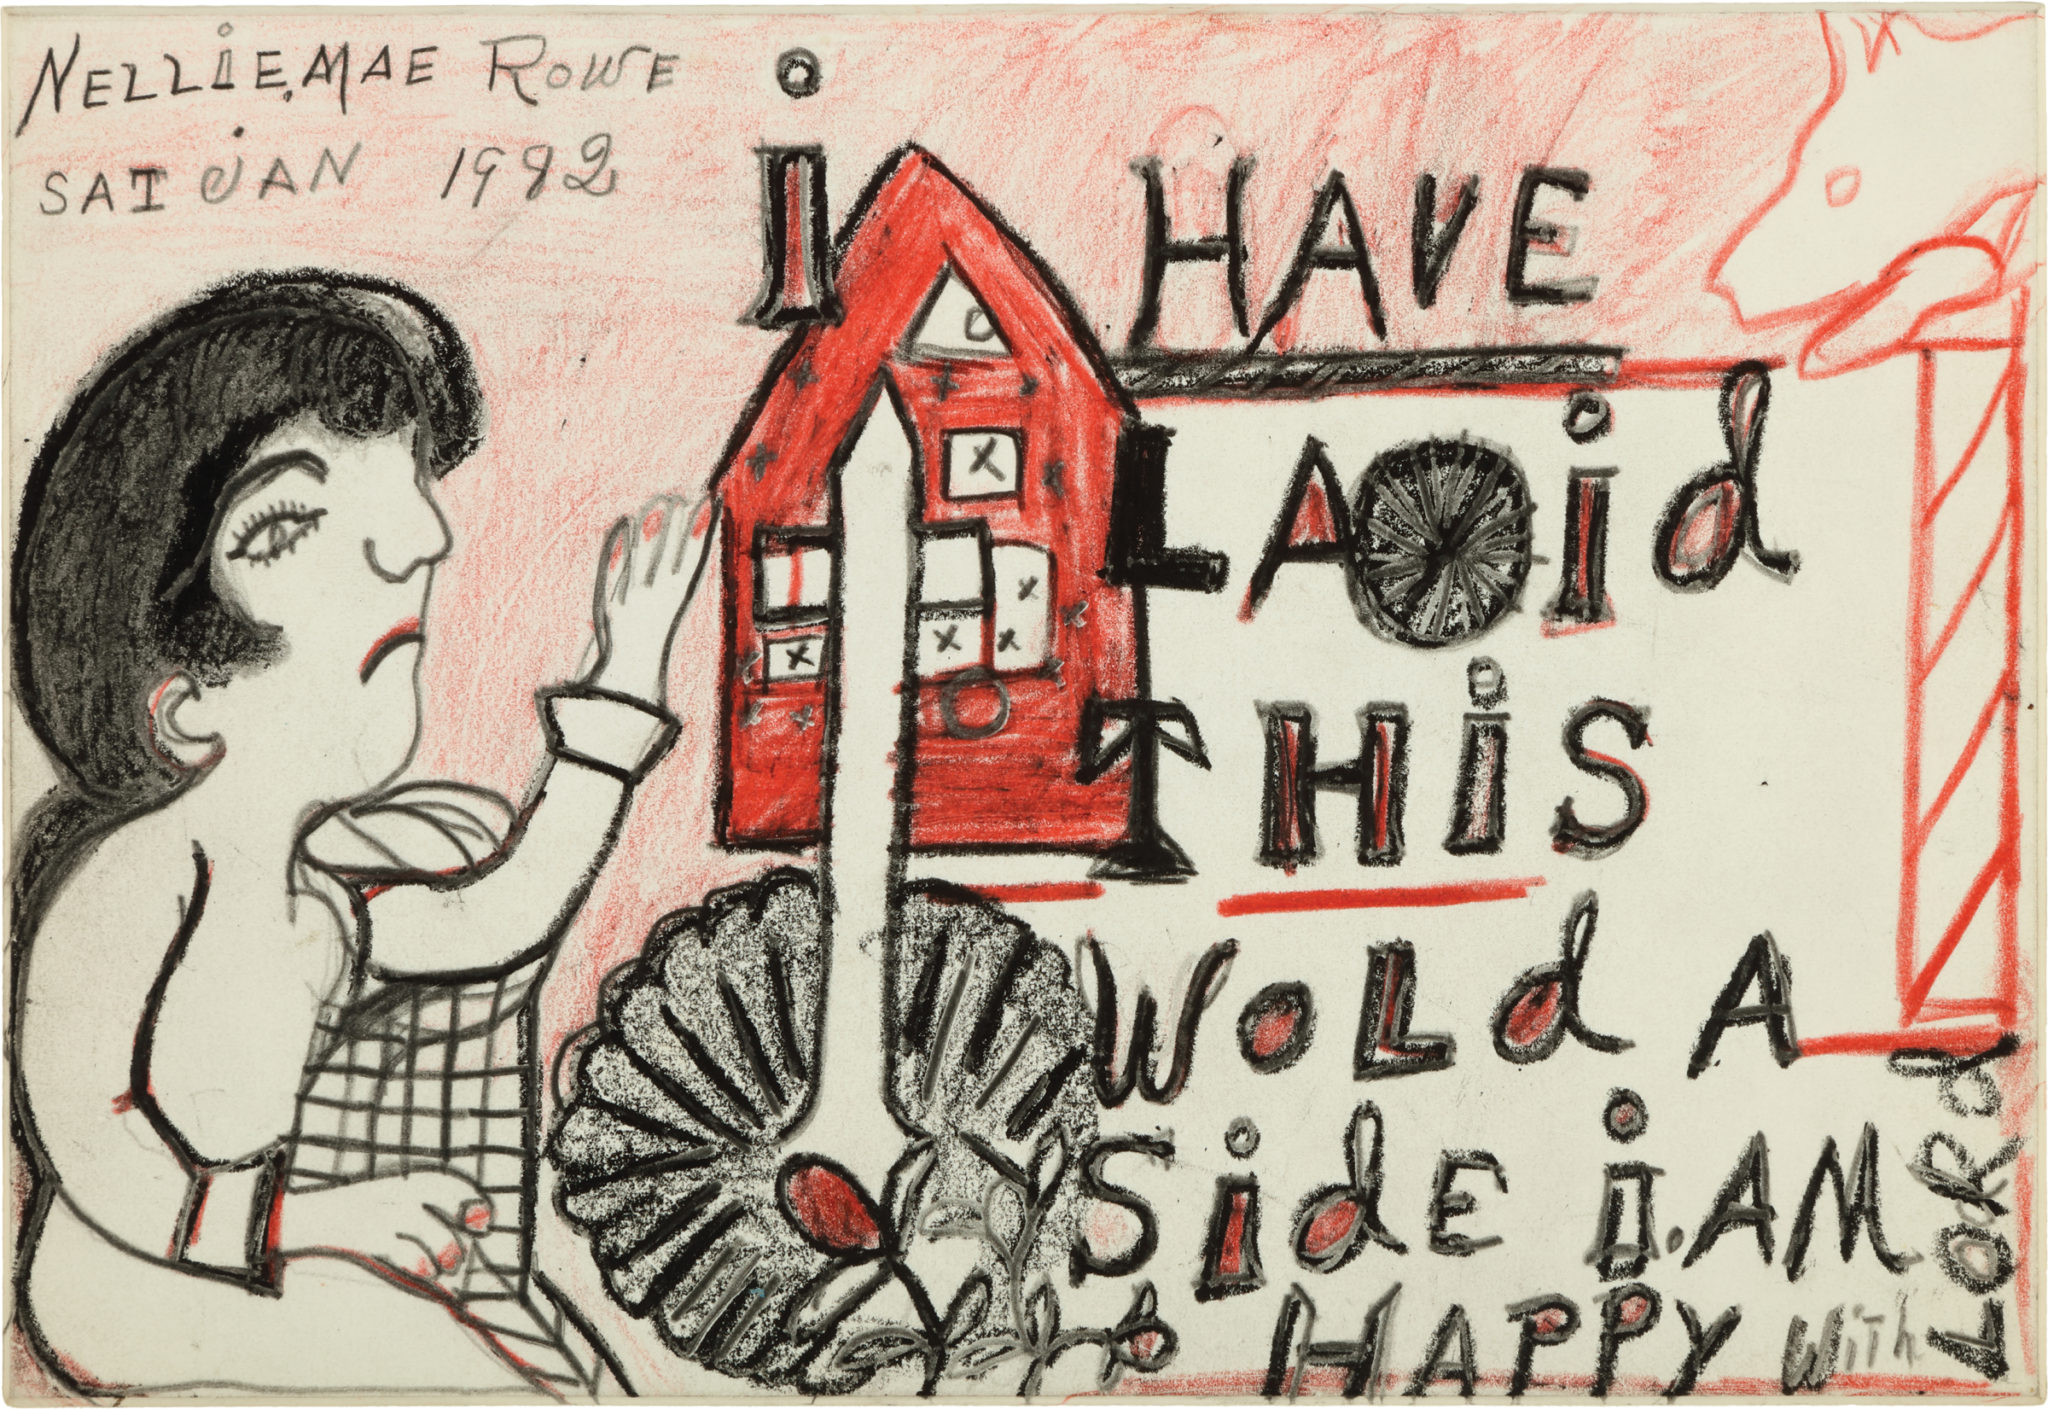 NELLiE.MAE ROWE
SAT JAN 1982
i HAVE
LAid
THiS
WOLd A
SidE i.AM
HAPPY with
LORd